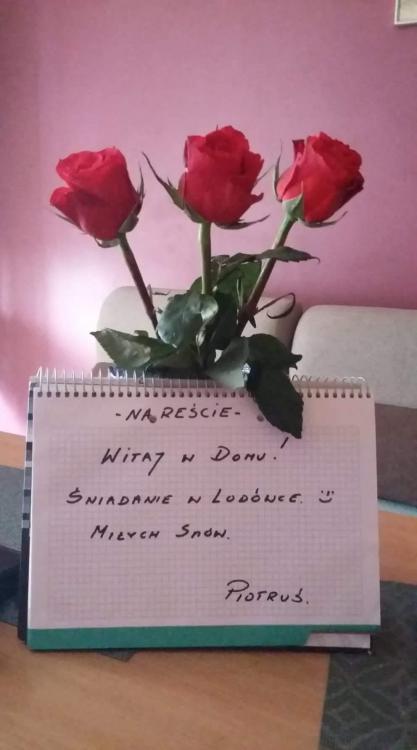 -NAREŚCIE-
WITAJ W DOMU!
ŚNIADANIE W LODÓWCE. :)
MIŁYCH SNÓW.
PIOTRUŚ.